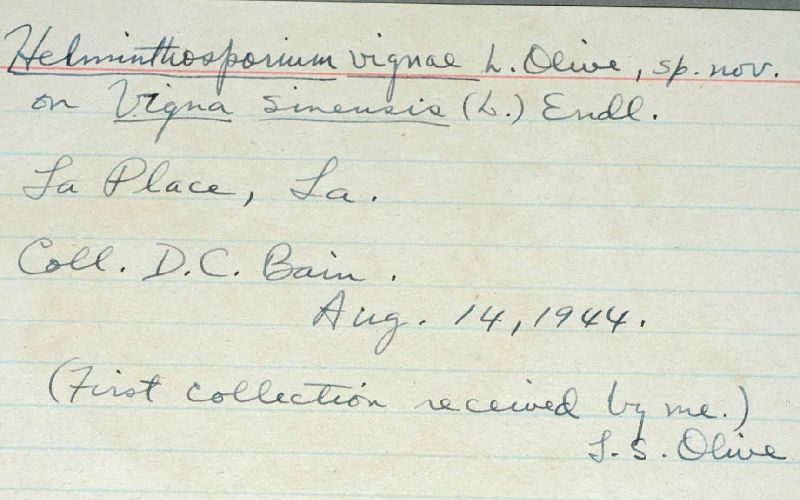 Helminthosporium vignae L. Olive, sp. nov.
on Vigna sinensis (L.) Endl.
La Place, La.
Coll. D.C. Bain.
Aug. 14, 1944.
(First collection received by me.)
L. S. Olive